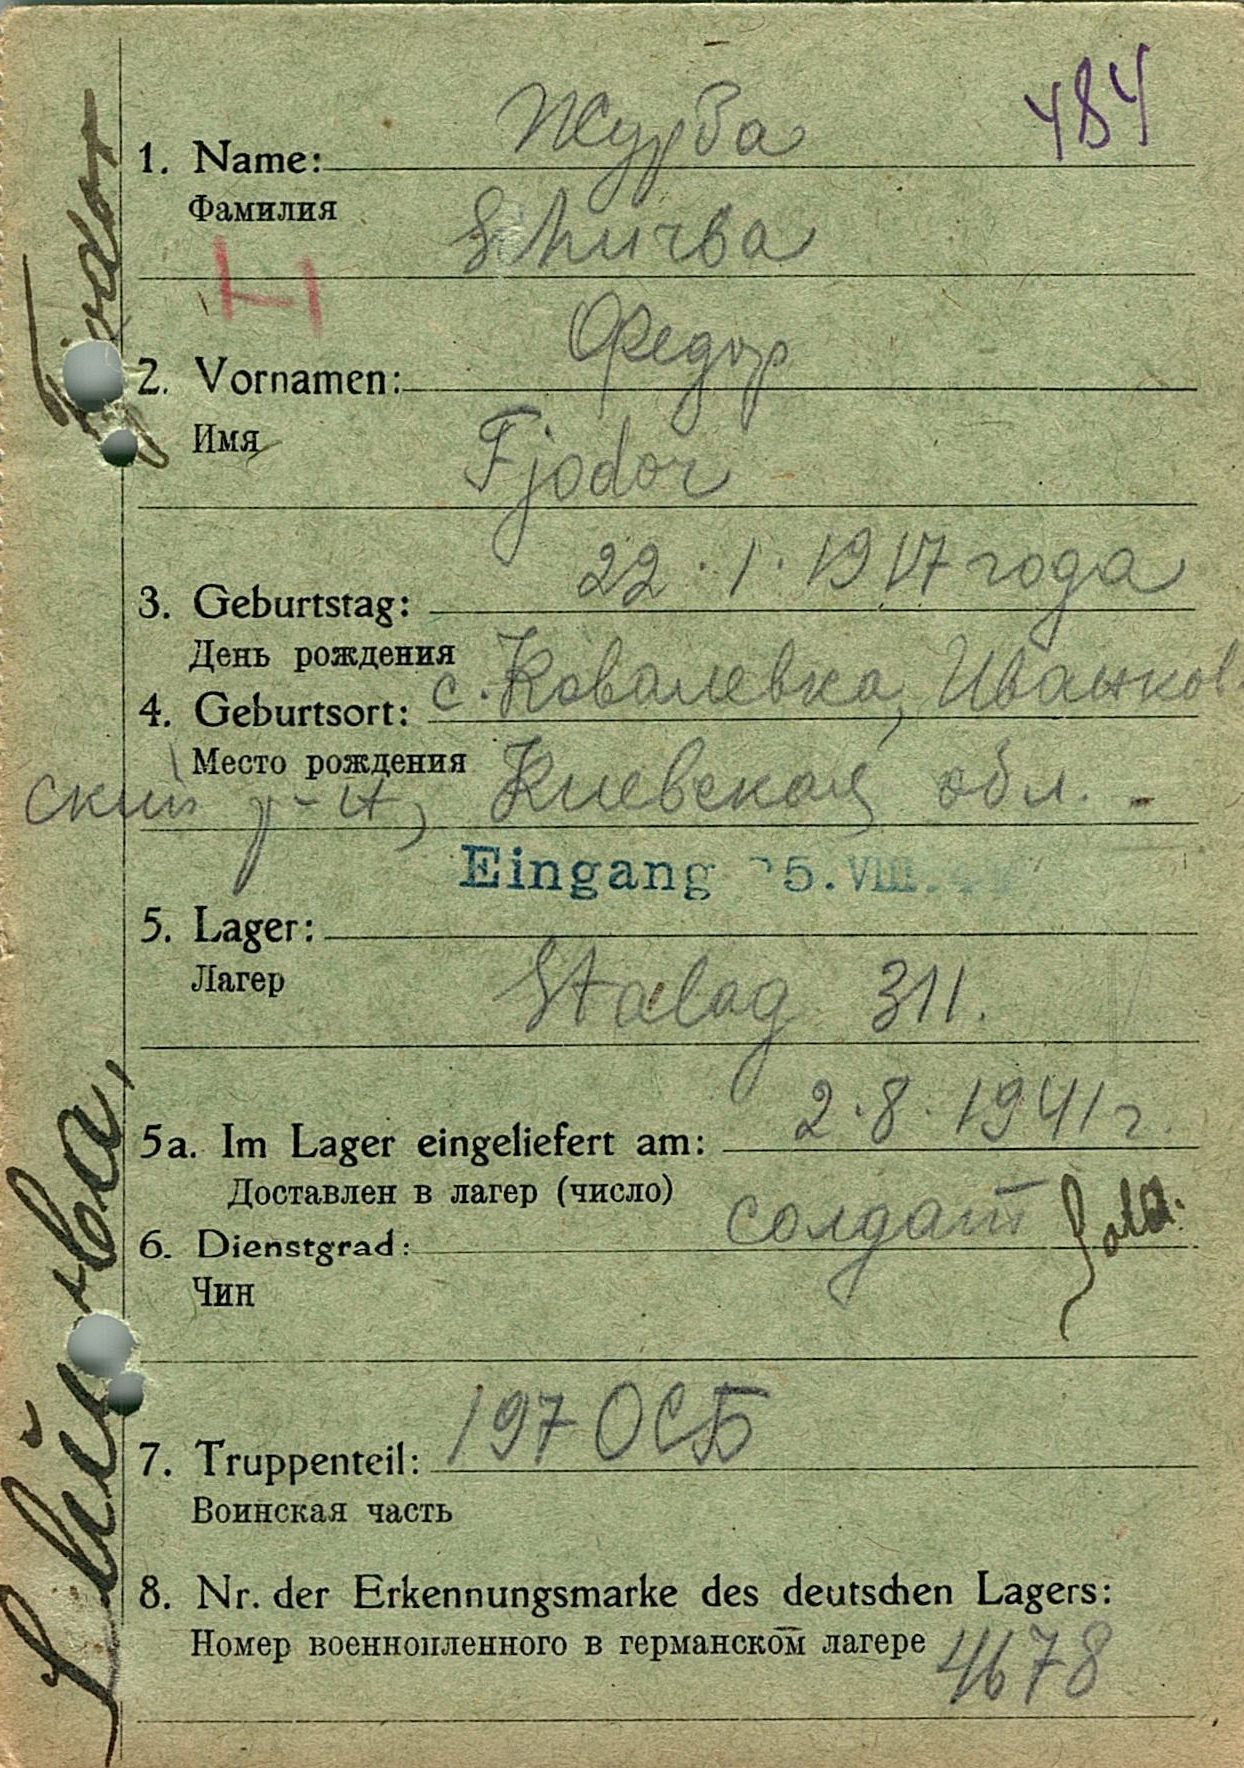 484
Журба
1. Name:
Фамилия
Schurba
Н
Федор
2. Vornamen:
Имя
Fjodor
22.1.1917 года
3. Geburtstag:
День рождения
с. Ковалевка, Иванков-
4. Geburtsort:
Место рождения
ский р-н, Киевская обл.
Eingang 5.VIII.
5. Lager:
Лагер
Stalag 311.
2.8.1941 г.
5a. Im Lager eingeliefert am:
Доставлен в лагер (число)
солдат Sold.
6. Dienstgrad:
Чин
197 ОСБ
7. Truppenteil:
Воинская часть
8. Nr. der Erkennungsmarke des deutschen Lagers:
Номер военнопленного в германском лагере 4678
Fjodor